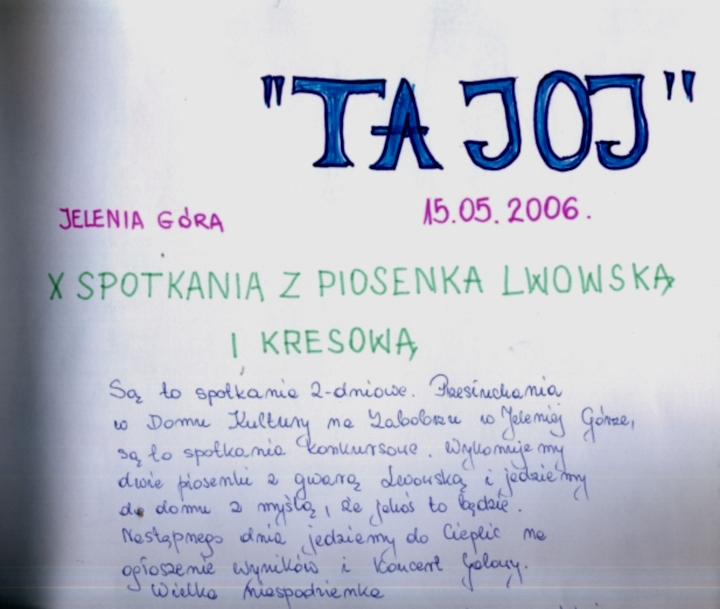 "TA JOJ"
JELENIA GÓRA 15.05.2006.
X SPOTKANIA Z PIOSENKA LWOWSKĄ
I KRESOWĄ
Są to spotkania 2-dniowe. Przesłuchania
w Domu Kultury na Zabobrzu w Jeleniej Górze,
są to spotkania konkursowe. Wykonujemy
dwie piosenki z gwarą Lwowską i jedziemy
do domu z myślą, że jakoś to będzie.
Następnego dnia jedziemy do Cieplic na
ogłoszenie wyników i Koncert Galowy.
Wielka niespodzianka